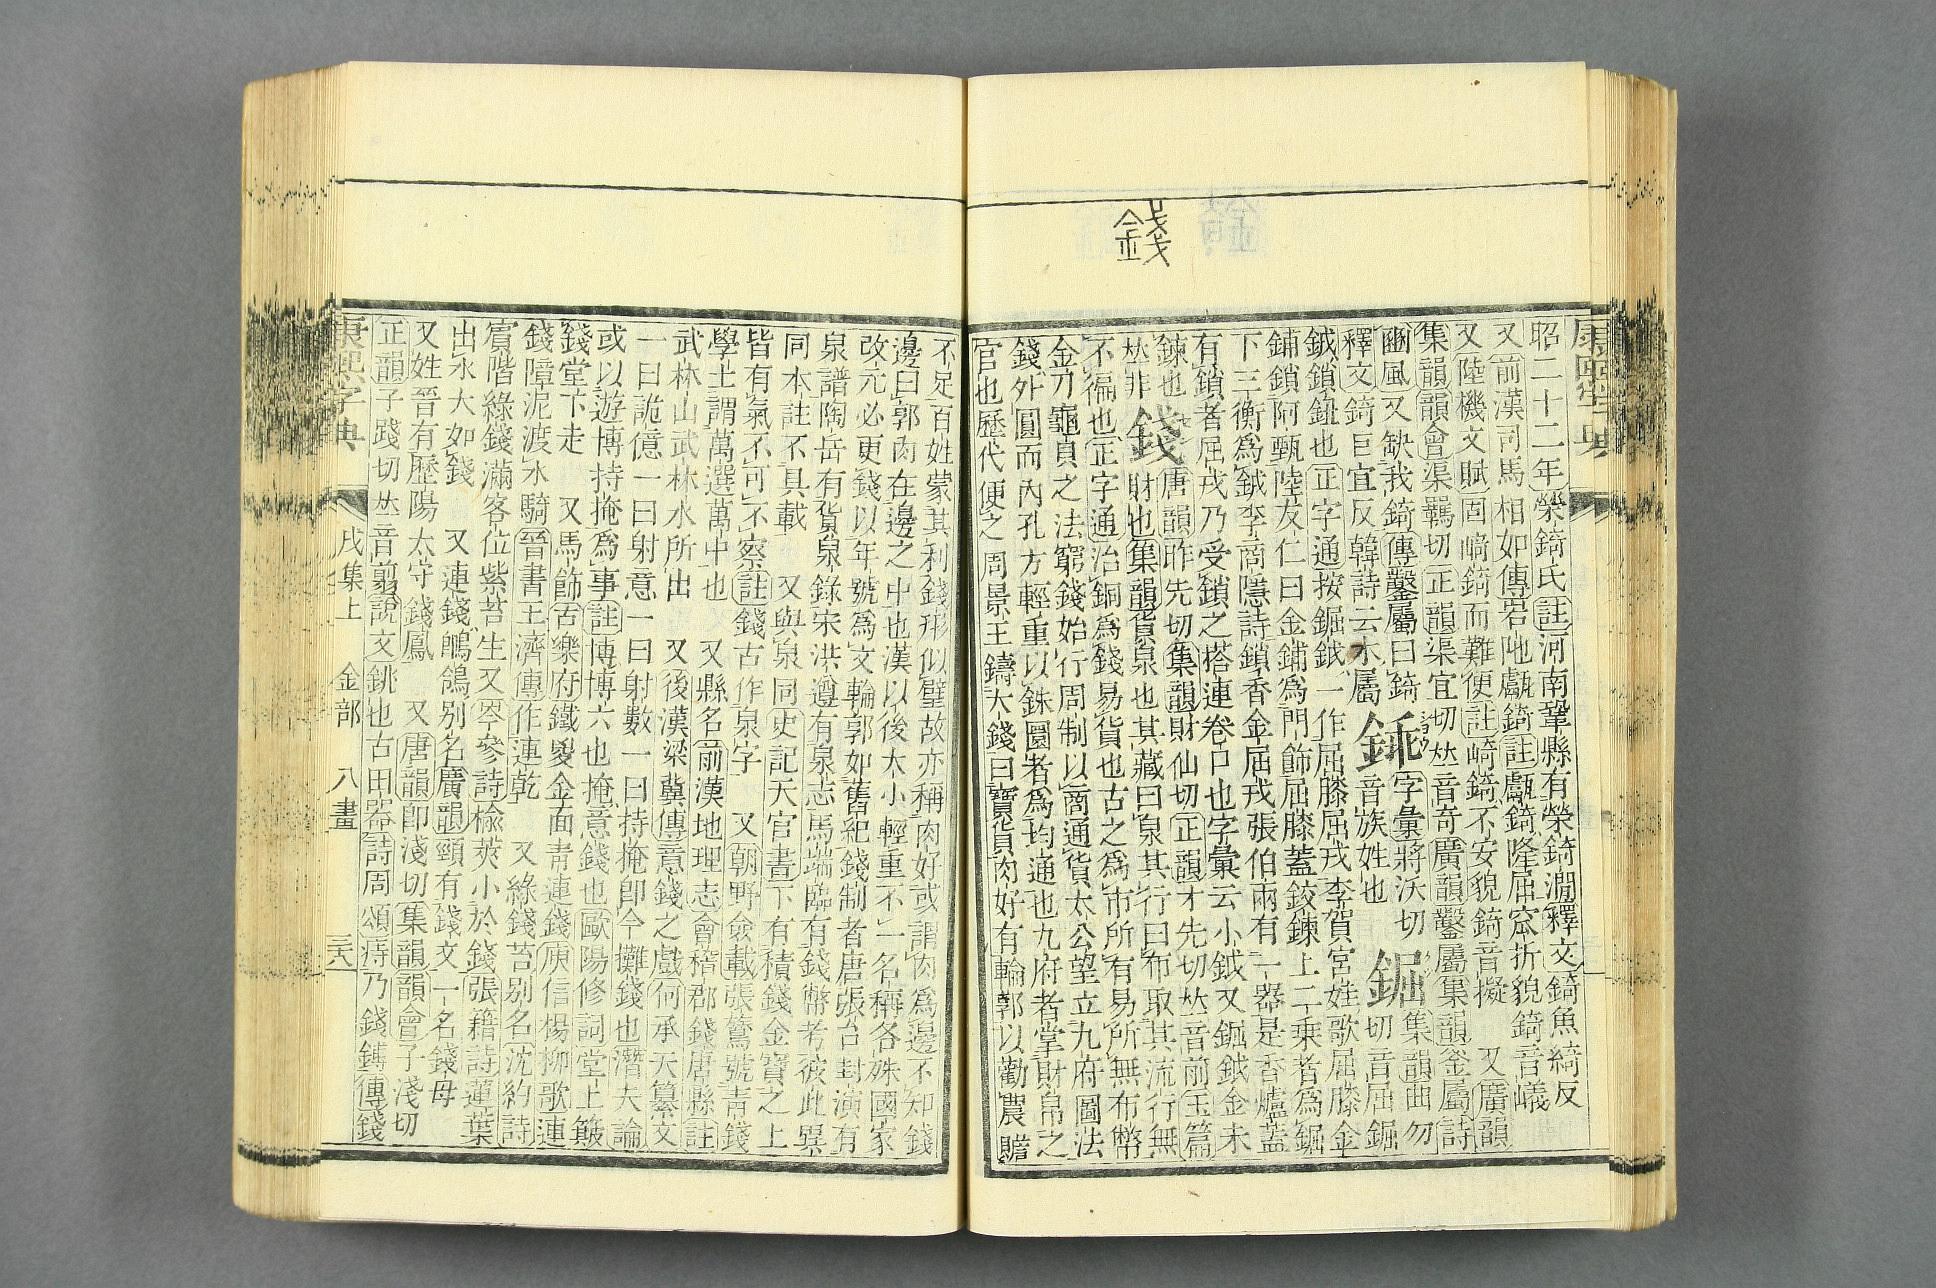 錢
昭二十二年榮錡氏註河南鞏縣有榮錡澗釋文錡魚綺反
又前漢司馬相如傳岩阤甗錡註甗錡隆屈窊折貌錡音嶬
又陸機文賦固崎錡而難便註崎錡不安貌錡音擬 又廣韻
集韻韻會渠羈切正韻渠宜切𠀤音奇廣韻鑿屬集韻釜屬詩
豳風又缺我錡傳鑿屬曰錡 釾 字彙將沃切 鋸 集韻曲勿
釋文錡巨宜反韓詩云木屬 音族姓也 切音屈鋸
鉞鎖鈕也正字通按鋸鉞一作屈膝屈戎李賀宮娃歌屈膝金
鋪鎖阿甄陸友仁曰金鋪爲門飾屈膝蓋鉸鍊上二乘者爲鋸
下三衡爲鉞李商隱詩鎖香金屈戎張伯雨有一器是香爐蓋
有鎖者屈戎乃受鎖之搭連卷口也字彙云小鉞又鋸鉞金未
鍊也𠀤非 錢 唐韻昨先切集韻財仙切正韻才先切𠀤音前玉篇
財也集韻貨泉也其藏曰泉其行曰布取其流行無
不徧也正字通冶銅爲錢易貨也古之爲市所有易所無布幣
金刀龜貝之法窮錢始行周制以商通貨太公望立九府圜法
錢外圓而內孔方輕重以銖圜者爲均通也九府者掌財帛之
官也歷代便之 周景王鑄大錢曰寶貨肉好有輪郭以勸農贍
不足百姓蒙其利錢形似璧故亦稱肉好或謂肉爲邊不知錢
邊曰郭肉在邊之中也漢以後大小輕重不一名稱各殊國家
改元必更錢以年號爲文輪郭如舊紀錢制者唐張台封演有
泉譜陶岳有貨泉錄宋洪遵有泉志馬端臨有錢幣考彼此異
同本註不具載 又與泉同史記天官書下有積錢金寶之上
皆有氣不可不察註錢古作泉字 又朝野僉載張鷟號靑錢
學士謂萬選萬中也 又縣名前漢地理志會稽郡錢唐縣註
武林山武林水所出 又後漢梁冀傳意錢之戲何承天纂文
一曰詭億一曰射意一曰射數一曰持掩卽今攤錢也潛夫論
或以遊博持掩爲事註博博六也掩意錢也歐陽修詞堂上簸
錢堂下走 又馬飾古樂府鐵鋄金面靑連錢庾信楊柳歌連
錢障泥渡水騎晉書王濟傳作連乾 又綠錢苔別名沈約詩
賓階綠錢滿客位紫苔生又岑參詩榆莢小於錢張籍詩蓮葉
出水大如錢 又連錢鶺鴒別名廣韻頸有錢文一名錢母
又姓晉有歷陽太守錢鳳 又唐韻卽淺切集韻韻會子淺切
正韻子踐切𠀤音翦說文銚也古田器詩周頌庤乃錢鎛傳錢
康熙字典 戌集上 金部 八畫 三六